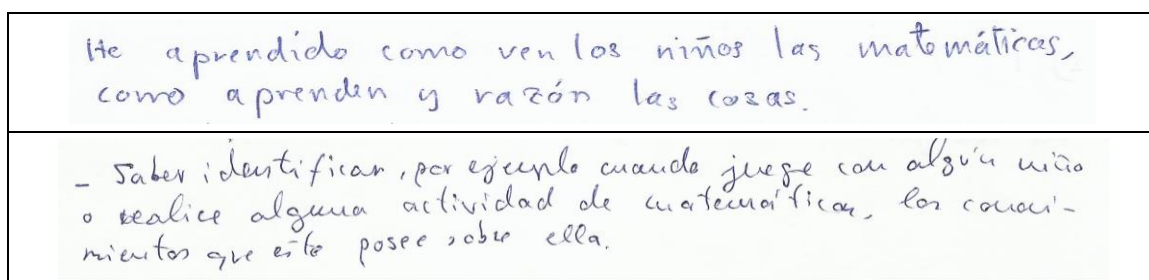 He aprendido como ven los niños las matemáticas,
como aprenden y razón las cosas.
- Saber identificar, por ejemplo cuando juege con algún niño
o realice alguna actividad de matemáticas, los conoci-
mientos que este posee sobre ella.